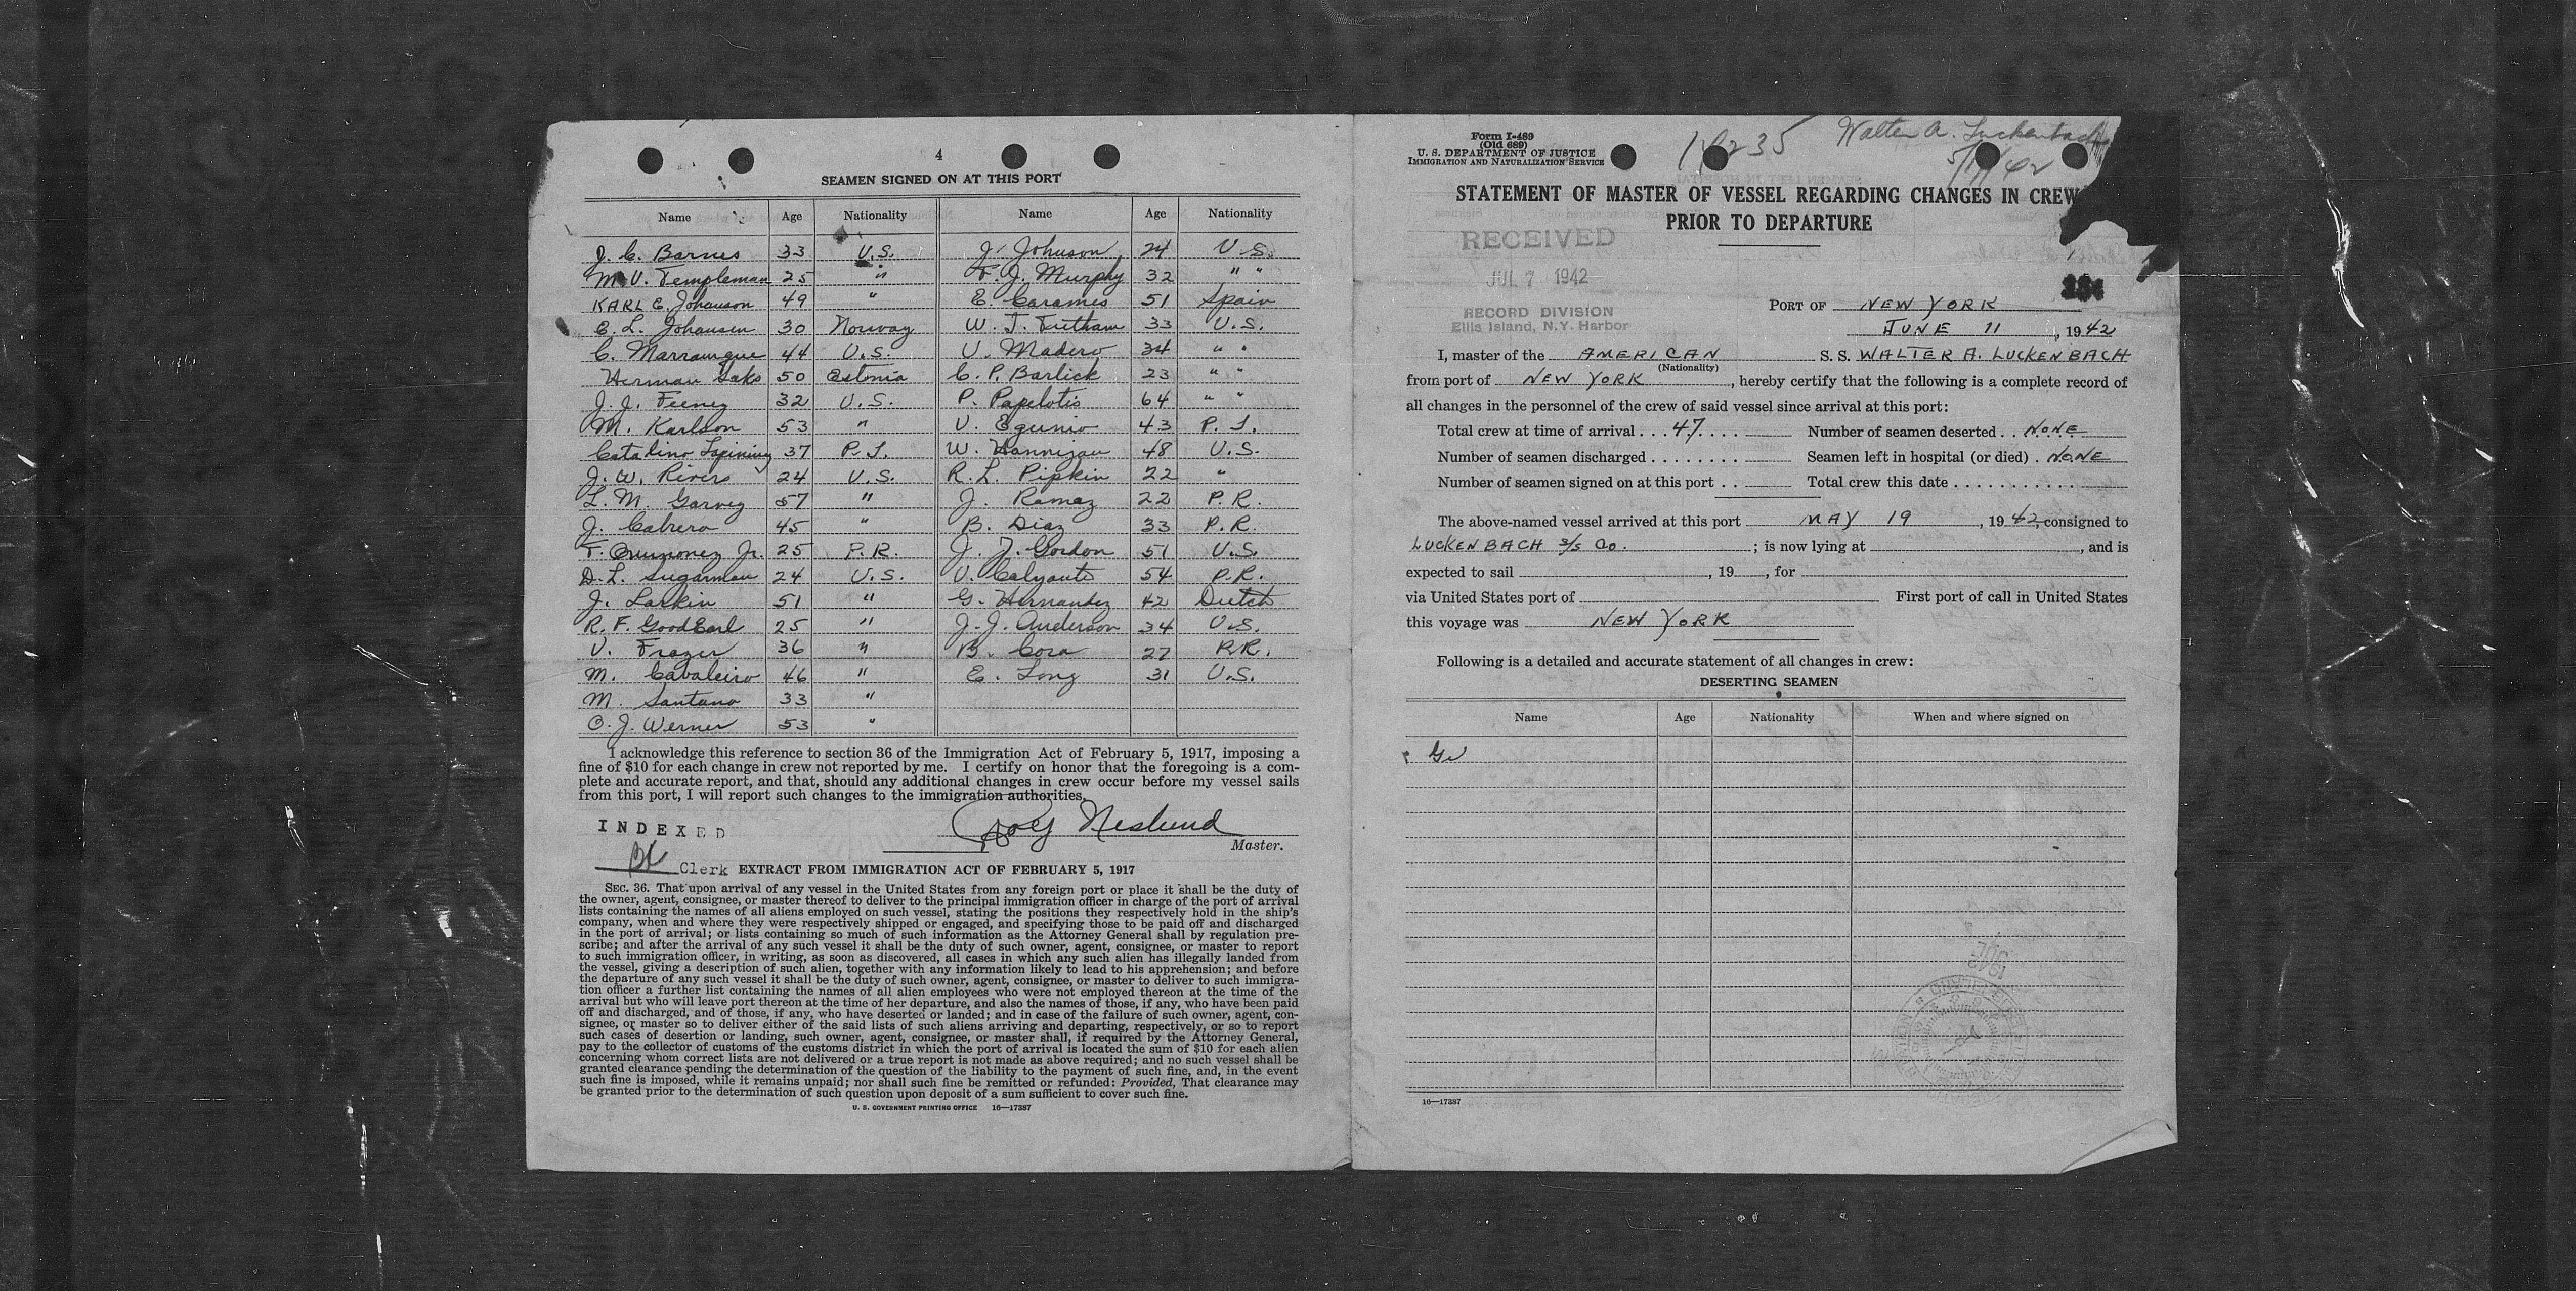 4
SEAMEN SIGNED ON AT THIS PORT
Name Age Nationality Name Age Nationality
J. C. Barnes 33 U.S. J. Johnson 24 U.S.
M. V. Templeman 25 " F. J. Murphy 32 " "
KARL E. Johanson 49 " E. Caramis 51 Spain
E. L. Johansen 30 Norway W. J. 33 U.S.
C. 44 U.S. V. Madero 34 " "
Herman Saks 50 Estonia C. P. Barlick 23 " "
J. J. Feeney 32 U.S. P. Papelotis 64 " "
M. Karlson 53 " V. Egunio 43 P. I.
Catalino 37 P. I. W. Hannigan 48 U.S.
J. W. Rivers 24 U.S. R. L. Pipkin 22 "
L. M. Garvey 57 " J. Ramaz 22 P. R.
J. Cabrero 45 " B. Diaz 33 P. R.
F. Quinonez Jr. 25 P. R. J. J. Gordon 51 U.S.
D. L. Sugarman 24 U.S. V. 54 P.R.
J. Larkin 51 " G. Hernandez 42 Dutch
R. F. GoodEarl 25 " J. J. Anderson 34 U.S.
V. Frazer 36 " B. Cora 27 P.R.
M. Cavaleiro 46 " E. Long 31 U.S.
M. Santano 33 "
O. J. Werner 53 "
I acknowledge this reference to section 36 of the Immigration Act of February 5, 1917, imposing a
fine of $10 for each change in crew not reported by me. I certify on honor that the foregoing is a com-
plete and accurate report, and that, should any additional changes in crew occur before my vessel sails
from this port, I will report such changes to the immigration authorities.
INDEXED
Roy Neslund
Master.
Clerk EXTRACT FROM IMMIGRATION ACT OF FEBRUARY 5, 1917
SEC. 36. That upon arrival of any vessel in the United States from any foreign port or place it shall be the duty of
the owner, agent, consignee, or master thereof to deliver to the principal immigration officer in charge of the port of arrival
lists containing the names of all aliens employed on such vessel, stating the positions they respectively hold in the ship's
company, when and where they were respectively shipped or engaged, and specifying those to be paid off and discharged
in the port of arrival; or lists containing so much of such information as the Attorney General shall by regulation pre-
scribe; and after the arrival of any such vessel it shall be the duty of such owner, agent, consignee, or master to report
to such immigration officer, in writing, as soon as discovered, all cases in which any such alien has illegally landed from
the vessel, giving a description of such alien, together with any information likely to lead to his apprehension; and before
the departure of any such vessel it shall be the duty of such owner, agent, consignee, or master to deliver to such immigra-
tion officer a further list containing the names of all alien employees who were not employed thereon at the time of the
arrival but who will leave port thereon at the time of her departure, and also the names of those, if any, who have been paid
off and discharged, and of those, if any, who have deserted or landed; and in case of the failure of such owner, agent, con-
signee, or master so to deliver either of the said lists of such aliens arriving and departing, respectively, or so to report
such cases of desertion or landing, such owner, agent, consignee, or master shall, if required by the Attorney General,
pay to the collector of customs of the customs district in which the port of arrival is located the sum of $10 for each alien
concerning whom correct lists are not delivered or a true report is not made as above required; and no such vessel shall be
granted clearance pending the determination of the question of the liability to the payment of such fine, and, in the event
such fine is imposed, while it remains unpaid; nor shall such fine be remitted or refunded: Provided, That clearance may
be granted prior to the determination of such question upon deposit of a sum sufficient to cover such fine.
U. S. GOVERNMENT PRINTING OFFICE 16—17387
Form I-489
(Old 689)
U. S. DEPARTMENT OF JUSTICE
IMMIGRATION AND NATURALIZATION SERVICE
Walter A. Luckenbach
STATEMENT OF MASTER OF VESSEL REGARDING CHANGES IN CREW
PRIOR TO DEPARTURE
RECEIVED
JUL 7 1942
RECORD DIVISION
Ellis Island, N.Y. Harbor
PORT OF NEW YORK
JUNE 11, 1942
I, master of the AMERICAN S. S. WALTER A. LUCKENBACH
(Nationality)
from port of NEW YORK, hereby certify that the following is a complete record of
all changes in the personnel of the crew of said vessel since arrival at this port:
Total crew at time of arrival . . . 47 . . . . Number of seamen deserted . . NONE
Number of seamen discharged . . . . . . . . Seamen left in hospital (or died) . NONE
Number of seamen signed on at this port . . Total crew this date . . . . . . . . . . .
The above-named vessel arrived at this port MAY 19, 1942, consigned to
LUCKENBACH S/S Co. ; is now lying at , and is
expected to sail , 19 , for
via United States port of First port of call in United States
this voyage was NEW YORK
Following is a detailed and accurate statement of all changes in crew:
DESERTING SEAMEN
Name Age Nationality When and where signed on
16—17387